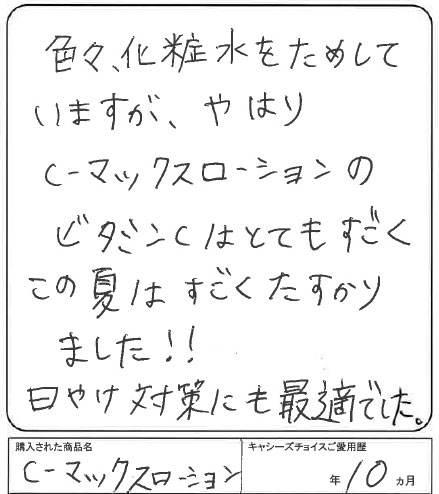 色々、化粧水をためして
いますが、やはり
C-マックスローションの
ビタミンCはとてもすごく
この夏はすごくたすかり
ました!!
日やけ対策にも最適でした。
購入された商品名
C-マックスローション
キャシーズチョイスご愛用歴
年 10 ヵ月